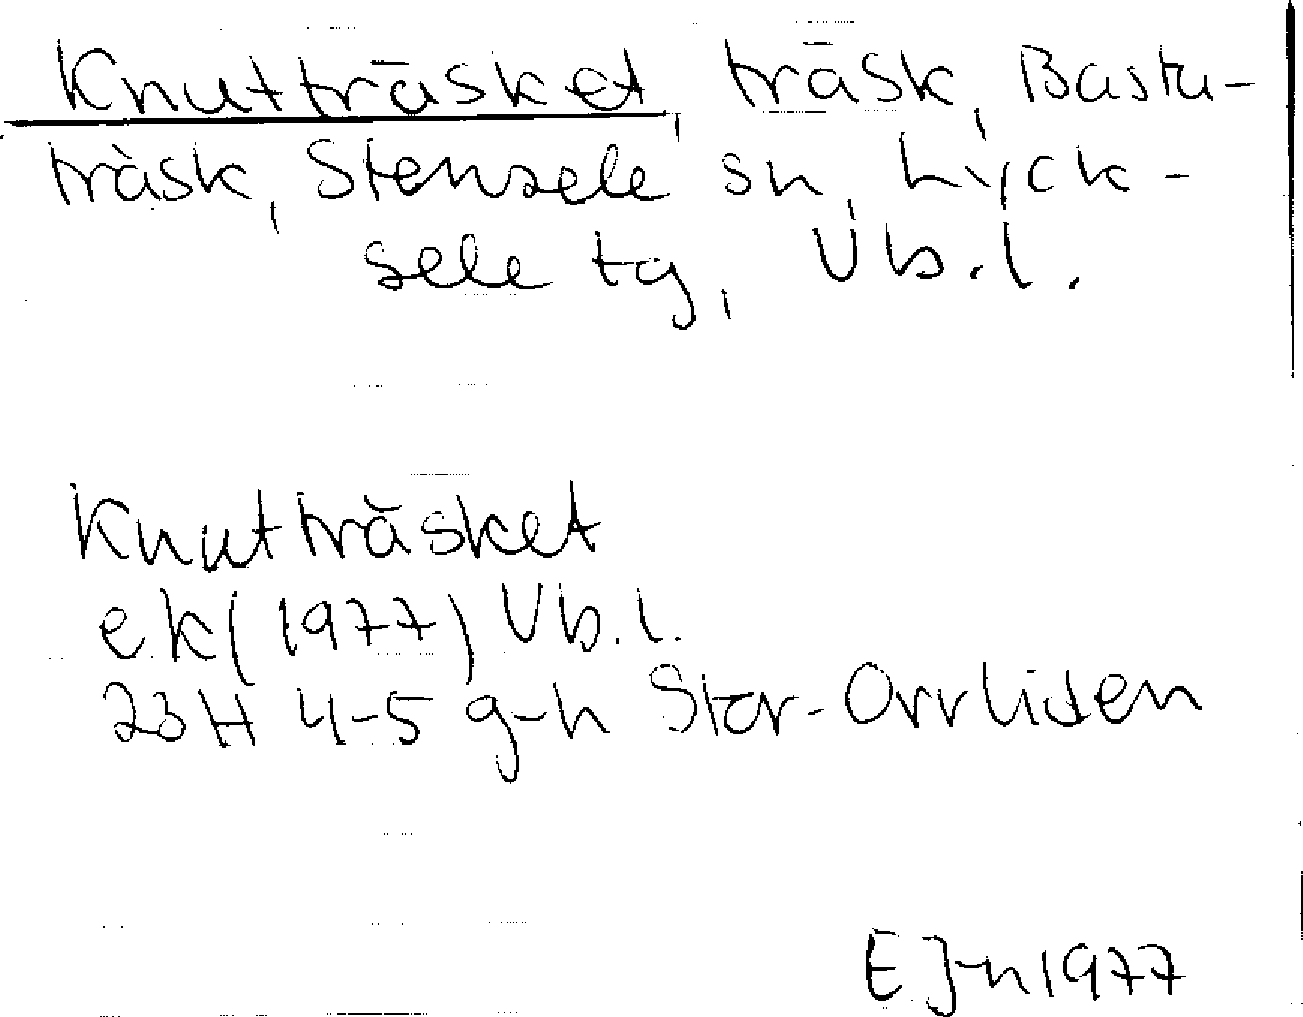 Knutträsket, träsk, Bastu-
träsk, Stensele sn, Lyck-
sele tg, Vb.l.
Knutträsket
ek(1977) Vb.l.
23H 4-5 g-h Stor-Orrliden
E J-n 1977